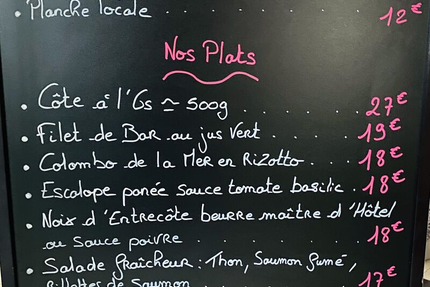 • Planche locale . . . . . 12€
Nos Plats
• Côte à l'Os ≃ 500g . . . . . 27€
• Filet de Bar au jus Vert . . . . 19€
• Colombo de la Mer en Rizotto . . . 18€
• Escalope panée sauce tomate basilic . 18€
• Noix d'Entrecôte beurre maître d'Hôtel
ou Sauce poivre . . . . . . 18€
• Salade fraîcheur : Thon, Saumon fumé,
Rillettes de Saumon . . . . . 17€